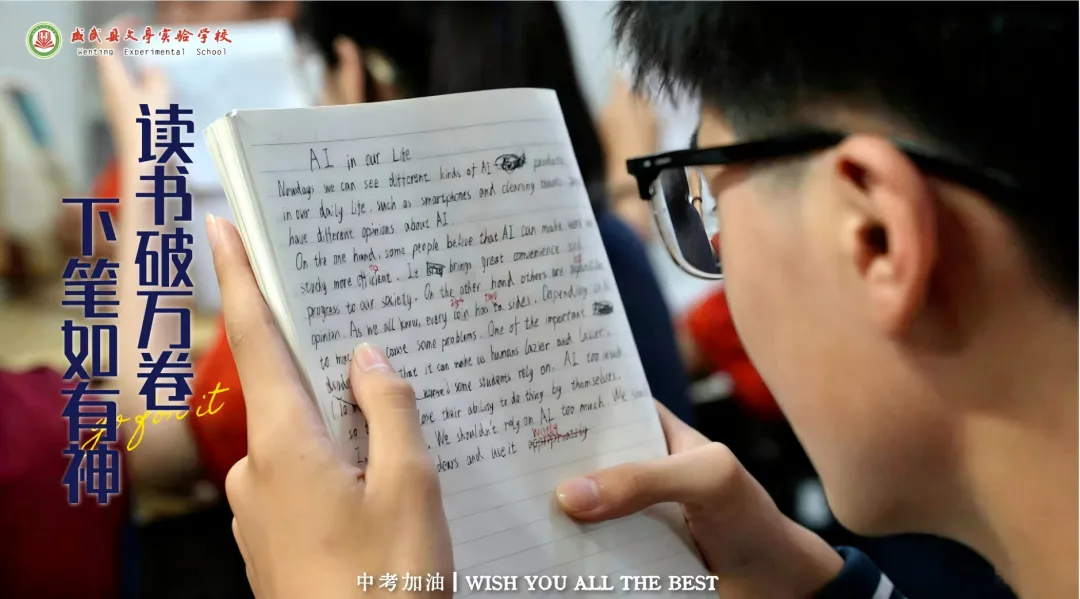 成武县文亭实验学校
Wenting Experimental School
读书破万卷
下笔如有神
go for it
AI in our Life
Nowdays we can see different kinds of AI products
in our daily life. such as smartphones and cleaning
have different opinions about AI.
On the one hand, some people belive that AI can make
study more efficient. It brings great convenience and
progress to our society. On the other hand others are
opinion. As we all know, every coin has to sides. Depending
two
to cause some problems. One of the important
that it can make us humans lazier and lazier.
some students rely on. AI too much
so their ability to do thing by themselves.
We shouldn't rely on AI too much. We
wisely
and use it
中考加油 | WISH YOU ALL THE BEST